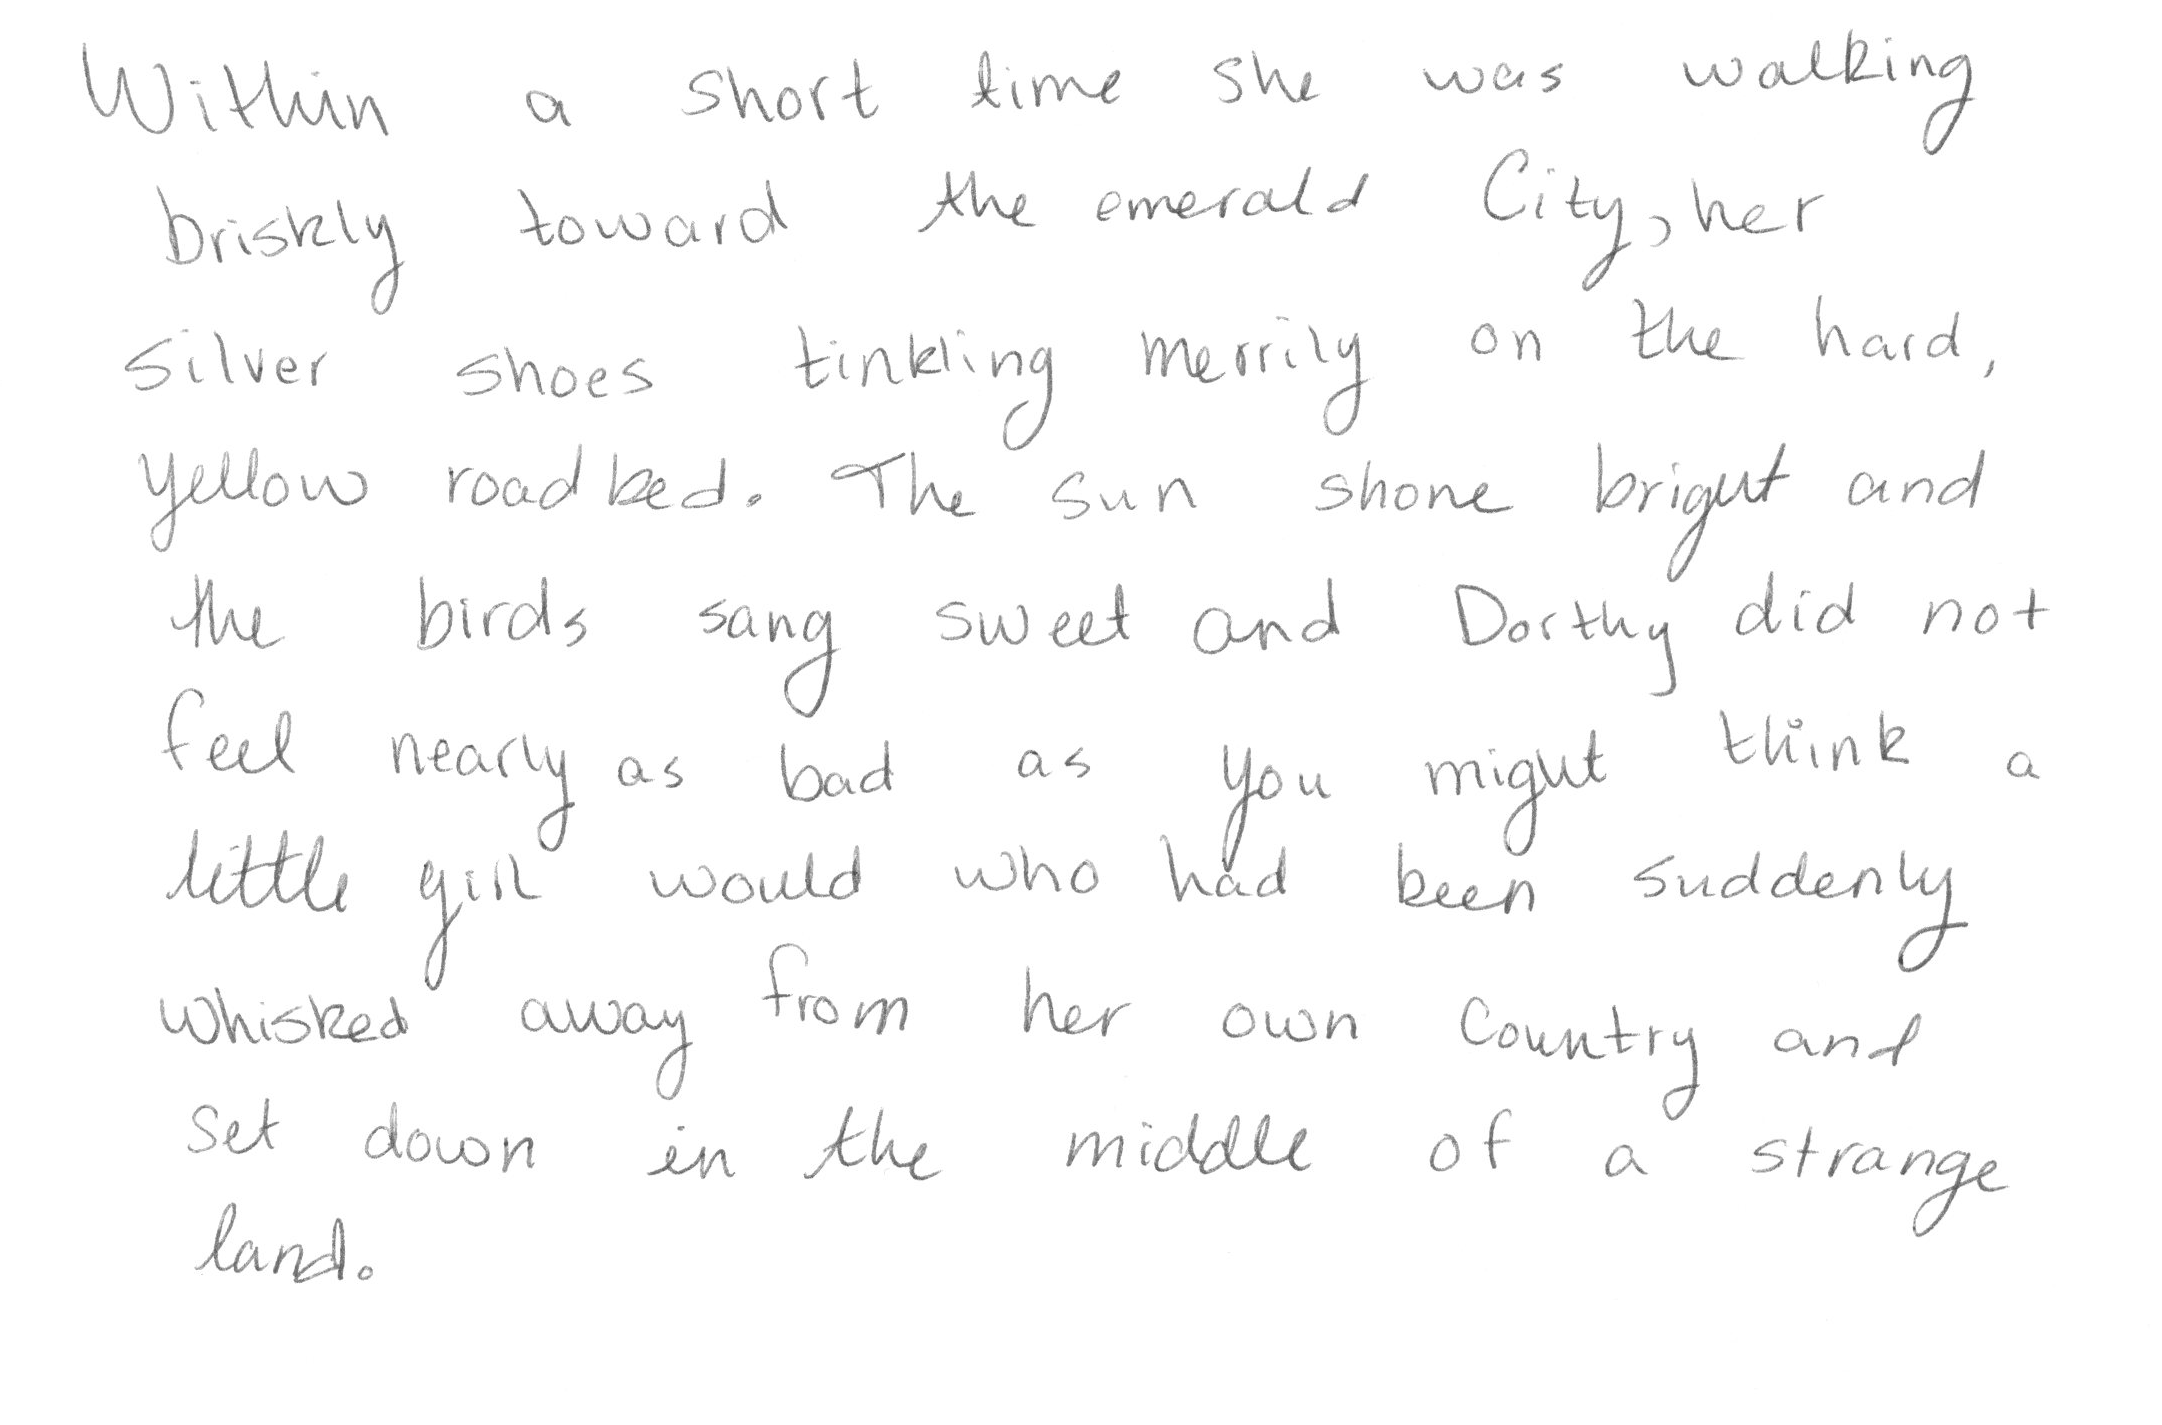 Within a short time she was walking
briskly toward the emerald City, her
silver shoes tinkling merrily on the hard,
yellow road bed. The sun shone bright and
the birds sang sweet and Dorthy did not
feel nearly as bad as you might think a
little girl would who had been suddenly
whisked away from her own country and
set down in the middle of a strange
land.